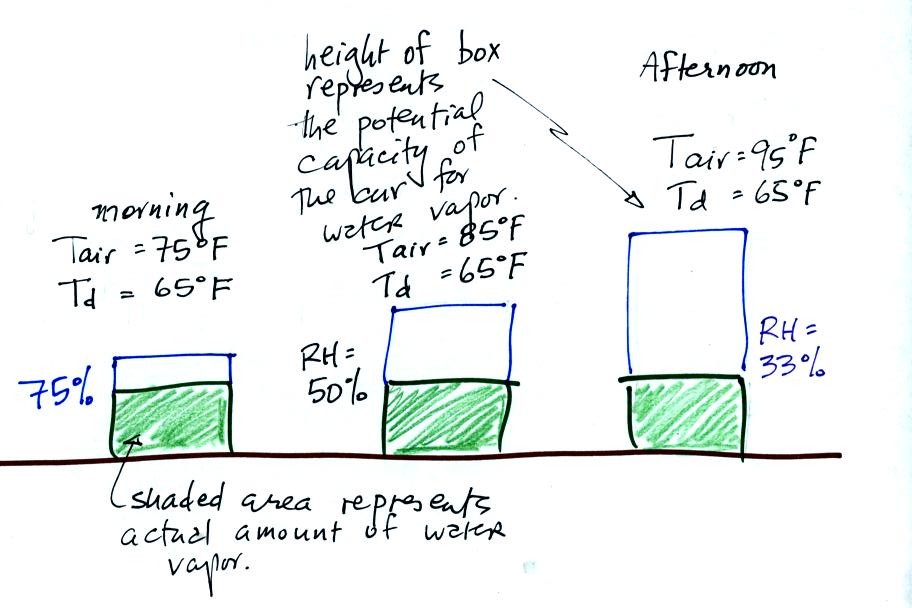 height of box
represents
the potential
capacity of
the air for
water vapor.
Afternoon
Tair = 95°F
Td = 65°F
morning
Tair = 75°F
Td = 65°F
Tair = 85°F
Td = 65°F
75%
RH =
50%
RH =
33%
shaded area represents
actual amount of water
vapor.